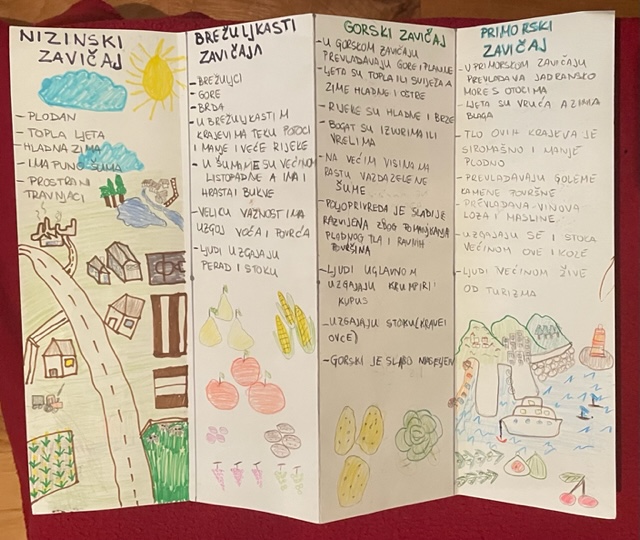 NIZINSKI
ZAVIČAJ
- PLODAN
- TOPLA LJETA
HLADNA ZIMA
- IMA PUNO ŠUMA
- PROSTRANI
TRAVNJACI
BREŽULJKASTI
ZAVIČAJ
- BREŽULJCI
- GORE
- BRDA
- U BREŽULJKASTIM
KRAJEVIMA TEKU POTOCI
I MANJE I VEĆE RIJEKE
- U ŠUMI IMA SU VEĆINOM
LISTOPADNE A IMA I
HRASTA I BUKVE
- VELIKU VAŽNOST IMA
UZGOJ VOĆA I POVRĆA
- LJUDI UZGAJAJU
PERAD I STOKU
GORSKI ZAVIČAJ
- U GORSKOM ZAVIČAJU
PREVLADAVAJU GORE I PLANINE
- LJETA SU TOPLA ILI SVJEŽA A
ZIME HLADNE I OŠTRE
- RIJEKE SU HLADNE I BRZE
- BOGAT SU IZVORIMA ILI
VRELIMA
- NA VEĆIM VISINAMA
RASTU VAZDAZELENE
ŠUME
- POLJOPRIVREDA JE SLABIJE
RAZVIJENA ZBOG POMANJKANJA
PLODNOG TLA I RAVNIH
POVRŠINA
- LJUDI UGLAVNOM
UZGAJAJU KRUMPIR I
KUPUS
- UZGAJAJU STOKU (KRAVE I
OVCE)
- GORSKI JE SLABO NASELJEN
PRIMORSKI
ZAVIČAJ
- U PRIMORSKOM ZAVIČAJU
PREVLADAVA JADRANSKO
MORE S OTOCIMA
- LJETA SU VRUĆA A ZIMA
BLAGA
- TLO OVIH KRAJEVA JE
SIROMAŠNO I MANJE
PLODNO
- PREVLADAVAJU GOLEME
KAMENE POVRŠINE
- PREVLADAVA VINOVA
LOZA I MASLINE
- UZGAJAJU SE I STOKA
VEĆINOM OVE I KOZE
- LJUDI VEĆINOM ŽIVE
OD TURIZMA